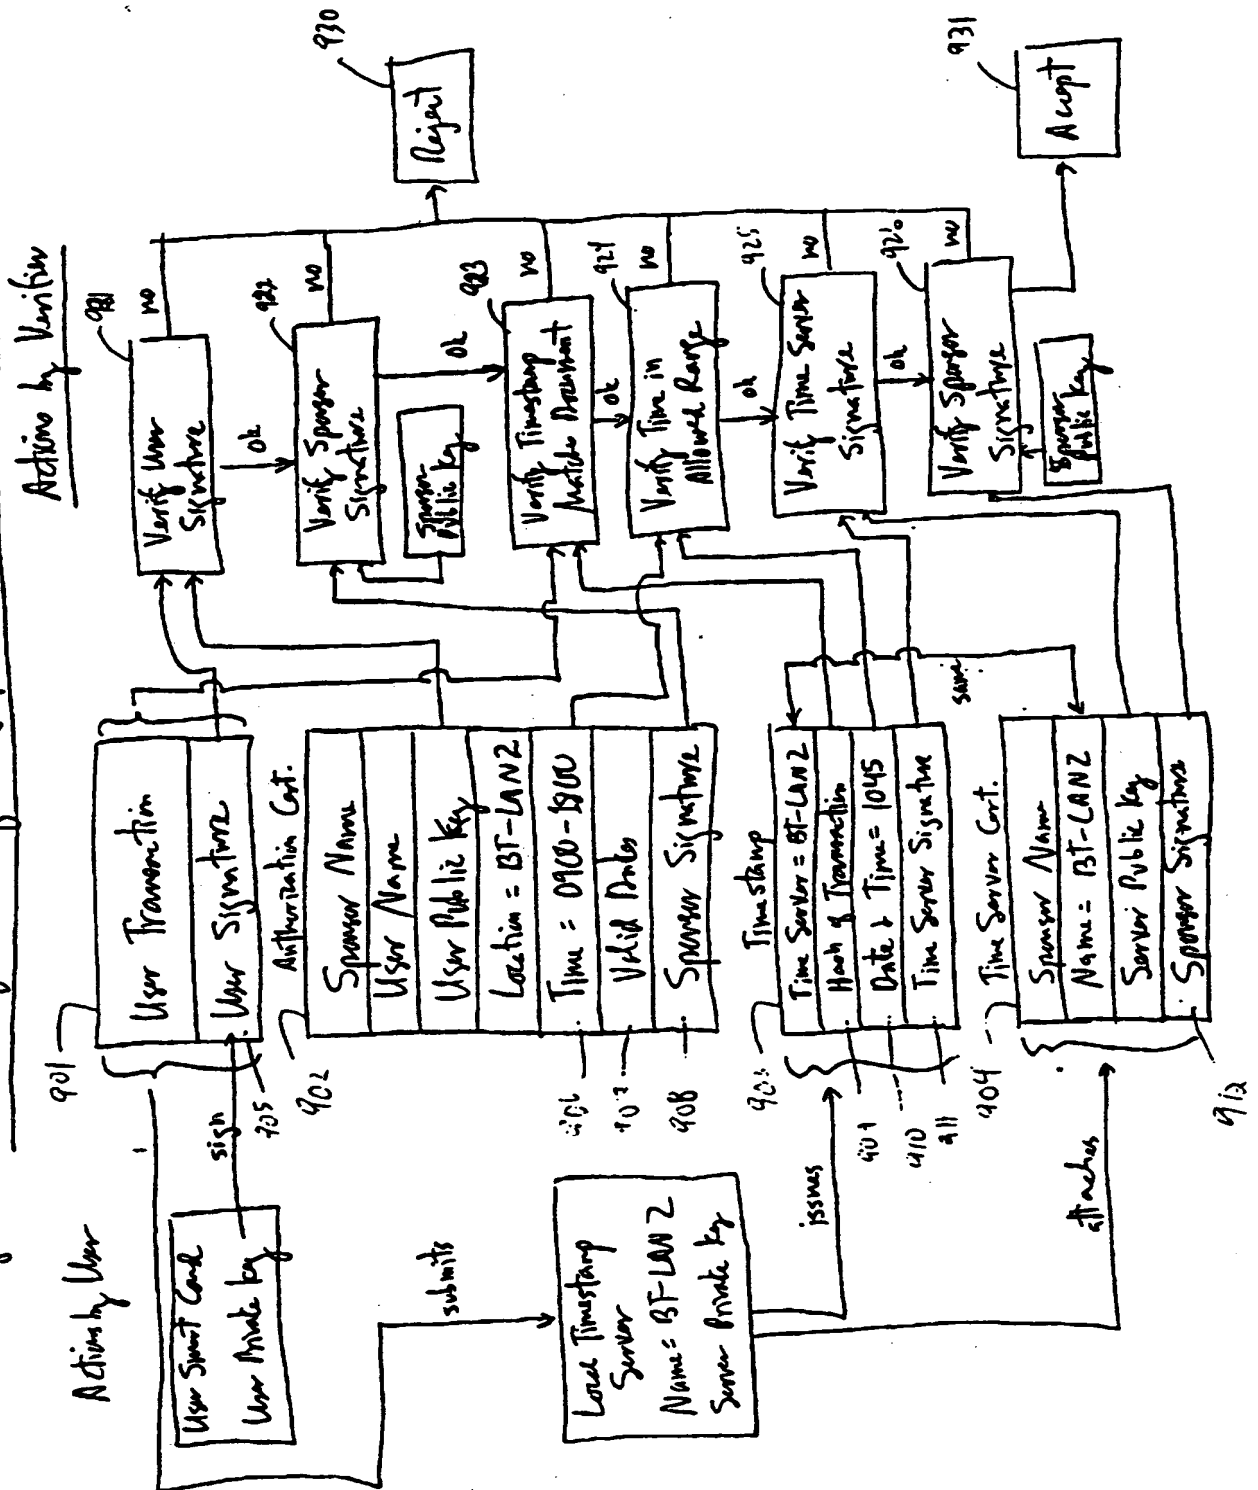 Actions by User
User Smart Card
User Private Key
sign
submits
Local Timestamp
Server
Name = BT-LAN2
Server Private Key
issues
attaches
901
User Transaction
User Signature
902
Authorization Cert.
Sponsor Name
User Name
User Public Key
Location = BT-LAN2
Time = 0900-1900
Valid Dates
Sponsor Signature
908
Timestamp
Time Server = BT-LAN2
Hash of Transaction
Date & Time = 1045
Time Server Signature
910
911
904
Time Server Cert.
Sponsor Name
Name = BT-LAN2
Server Public Key
Sponsor Signature
912
same
Actions by Verifier
Verify User
Signature
no
ok
922
Verify Sponsor
Signature
no
ok
Sponsor
Public Key
923
Verify Timestamp
Matches Document
no
ok
924
Verify Time in
Allowed Range
no
ok
925
Verify Time Server
Signature
no
ok
926
Verify Sponsor
Signature
no
Sponsor
Public Key
930
Reject
931
Accept